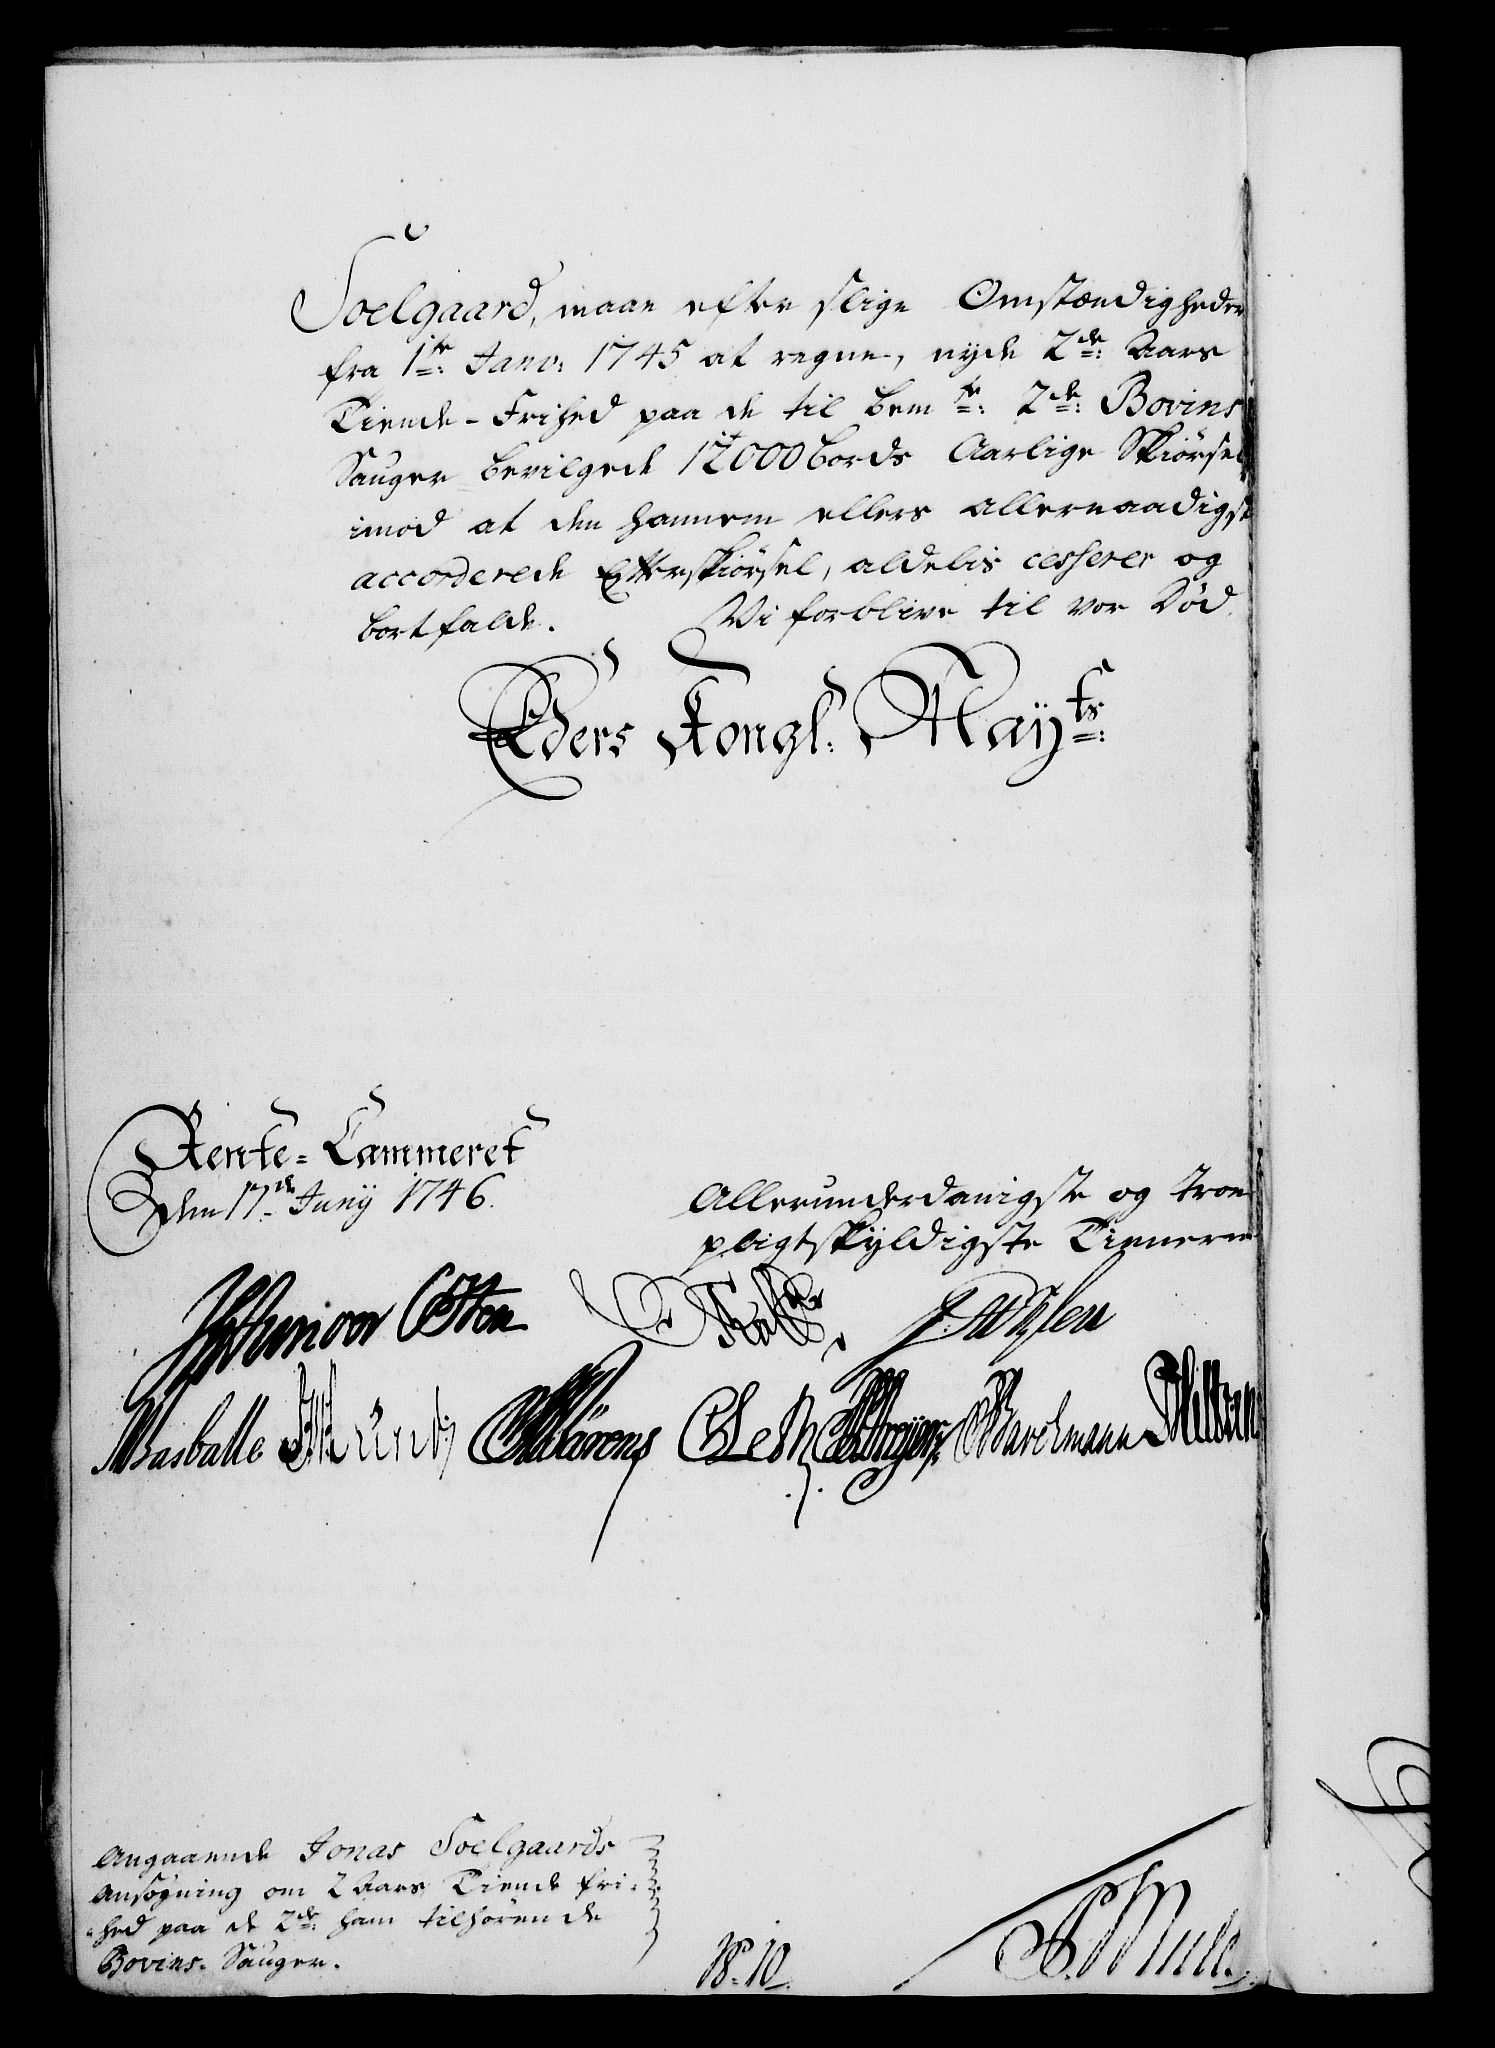 Soelgaard, maae efter slige Omstændigheder
fra 1te Janv: 1745 at regne, nyde 2de: Aars
Tiende-Frihed paa de til bemte: 2de: Bovins
Sauger bevilgede 12000 bords Aarlige Skiørsel
imod at den hannem ellers allernaadigst
accorderede Efterskiørsel, aldelis cesserer og
bortfalde. Vi forblive til vor Död
Eders Kongl. Mayts:
Rente-Cammeret
den 17de Junij 1746.
Allerunderdanigste og troe
pligtskyldigste Tienere
Angaaende Jonas Soelgaards
Ansøgning om 2 Aars Tiende fri-
hed paa de 2de: ham tilhörende
Bovins-Sauger.
N: 10.